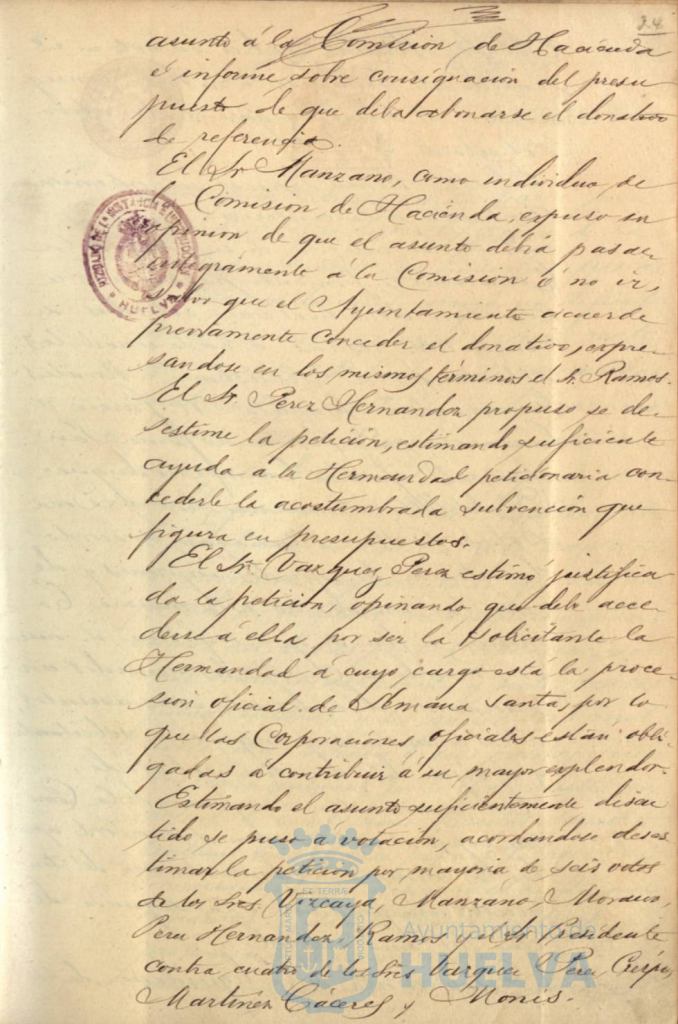 24
asunto á la Comisión de Hacienda
é informe sobre consignación del presu
puesto de que deba abonarse el donativo
de referencia.
El Sr Manzano, como individuo de
la Comisión de Hacienda, expuso su
opinion de que el asunto debia pasar
integramente á la Comisión ó no ir,
salvo que el Ayuntamiento acuerde
previamente conceder el donativo, expre-
sandose en los mismos términos el Sr. Ramos.
El Sr. Perez Hernandez propuso se de-
sestime la petición, estimando suficiente
ayuda a la Hermandad peticionaria con-
cederle la acostumbrada subvención que
figura en presupuestos.
El Sr. Vazquez Perez estimó justifica
da la petición, opinando que debe acce
derse á ella por ser la solicitante la
Hermandad á cuyo cargo está la proce-
sion oficial de Semana Santa, por lo
que las Corporaciones oficiales están obli-
gadas a contribuir á su mayor esplendor.
Estimando el asunto suficientemente discu
tido se puso a votación, acordándose deses
timar la petición por mayoria de seis votos
de los Sres Vizcaya, Manzano, Moreno,
Perez Hernandez, Ramos y el Sr Presidente
contra cuatro de los Sres Vazquez Perez, Crespo,
Martinez Cáceres y Monis.
HUELVA
Ayuntamiento de
HUELVA